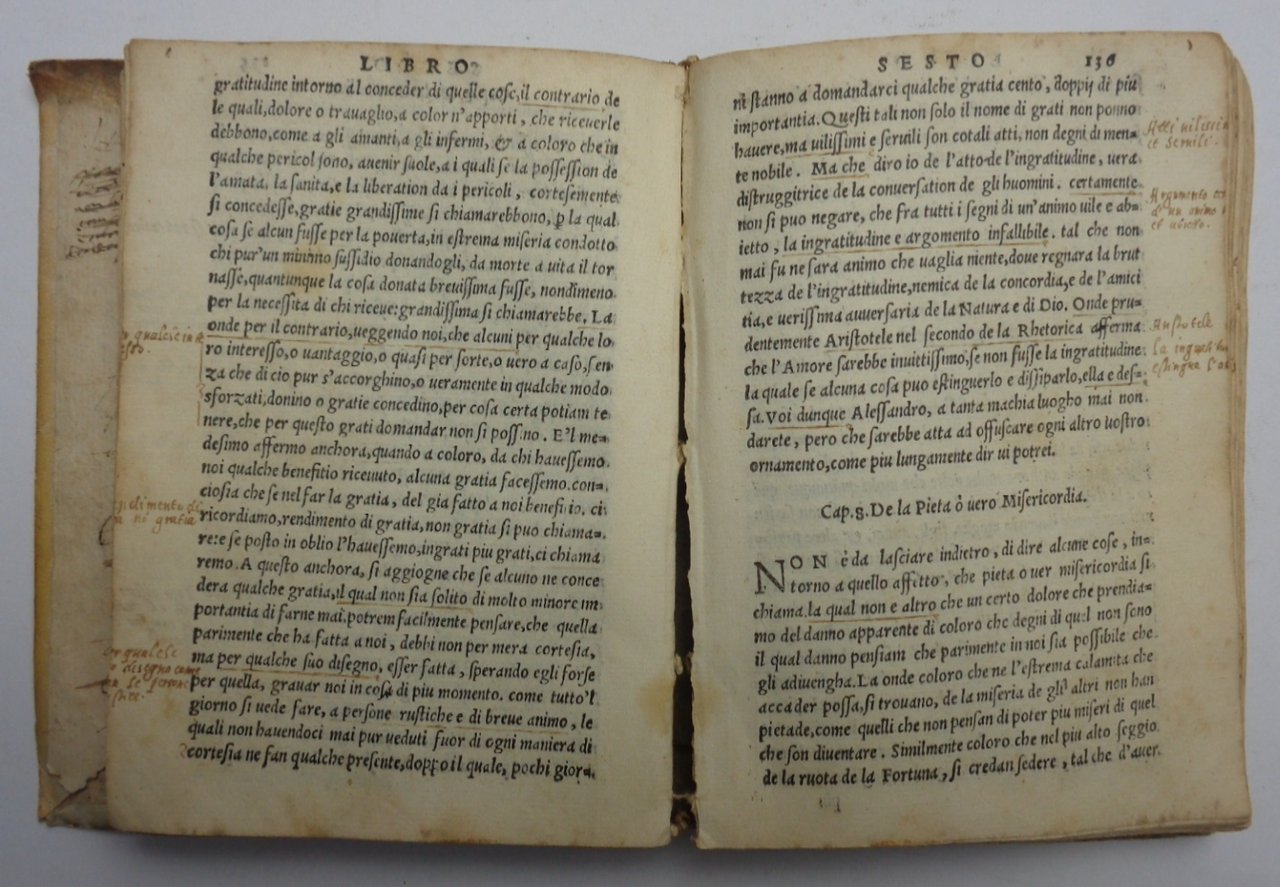 LIBRO
gratitudine intorno al conceder di quelle cose, il contrario de
le quali, dolore o trauaglio, a color n'apporti, che riceuerle
debbono, come a gli amanti, a gli infermi, & a coloro che in
qualche pericol sono, auenir suole, a i quali se la possession de
l'amata, la sanita, e la liberation da i pericoli, cortesemente
si concedesse, gratie grandissime si chiamarebbono, ꝑ la qual
cosa se alcun fusse per la pouerta, in estrema miseria condotto
chi pur'un minimo sussidio donandogli, da morte a uita il tor
nasse, quantunque la cosa donata breuissima fusse, nondimeno
per la necessita di chi riceue: grandissima si chiamarebbe. La
onde per il contrario, ueggendo noi, che alcuni per qualche lo
ro interesso, o uantaggio, o quasi per sorte, o uero a caso, sen
za che di cio pur s'accorghino, o ueramente in qualche modo
sforzati, donino o gratie concedino, per cosa certa potiam te
nere, che per questo grati domandar non si possino. E'l me=
desimo affermo anchora, quando a coloro, da chi hauessemo
noi qualche benefitio riceuuto, alcuna gratia facessemo. con=
ciosia che se nel far la gratia, del gia fatto a noi benefitio. ci
ricordiamo, rendimento di gratia, non gratia si puo chiama=
re: e se posto in oblio l'hauessemo, ingrati piu grati, ci chiama
remo. A questo anchora, si aggiogne che se alcuno ne conce
dera qualche gratia, il qual non sia solito di molto minore im
portantia di farne mai, potrem facilmente pensare, che quella
parimente che ha fatta a noi, debbi non per mera cortesia,
ma per qualche suo disegno, esser fatta, sperando egli forse
per quella, grauar noi in cosa di piu momento. come tutto'l
giorno si uede fare, a persone rustiche e di breue animo, le
quali non hauendoci mai pur ueduti fuor di ogni maniera di
cortesia ne fan qualche presente, doppo il quale, pochi gior=
qualche
gratia
qualche
disegno come
SESTO 136
ni stanno a domandarci qualche gratia cento, doppij di piu
importantia. Questi tali non solo il nome di grati non ponno
hauere, ma uilissimi e seruili son cotali atti, non degni di men=
te nobile. Ma che diro io de l'atto de l'ingratitudine, uera
distruggitrice de la conuersation de gli huomini. certamente
non si puo negare, che fra tutti i segni di un'animo uile e ab=
ietto, la ingratitudine e argomento infallibile. tal che non
mai fu ne sara animo che uaglia niente, doue regnara la brut
tezza de l'ingratitudine, nemica de la concordia, e de l'amici
tia, e uerissima auuersaria de la Natura e di Dio. Onde pru=
dentemente Aristotele nel secondo de la Rhetorica afferma
che l'Amore sarebbe inuittissimo, se non fusse la ingratitudine
la quale se alcuna cosa puo estinguerlo e dissiparlo, ella e des=
sa. Voi dunque Alessandro, a tanta machia luogho mai non
darete, pero che sarebbe atta ad offuscare ogni altro uostro
ornamento, come piu lungamente dir ui potrei.
Cap. 8. De la Pieta ò uero Misericordia.
NON è da lasciare indietro, di dire alcune cose, in=
torno a quello affetto, che pieta o uer misericordia si
chiama. la qual non e altro che un certo dolore che prendia=
mo del danno apparente di coloro che degni di quel non sono
il qual danno pensiam che parimente in noi sia possibile che
gli adiuengha. La onde coloro che ne l'estrema calamita che
accader possa, si trouano, de la miseria de gli altri non han
pietade, come quelli che non pensan di poter piu miseri di quel
che son diuentare. Similmente coloro che nel piu alto seggio
de la ruota de la Fortuna, si credan sedere, tal che d'auer
Atti uilissimi
et seruili
Argumento
d' un animo
et
Aristotele
La